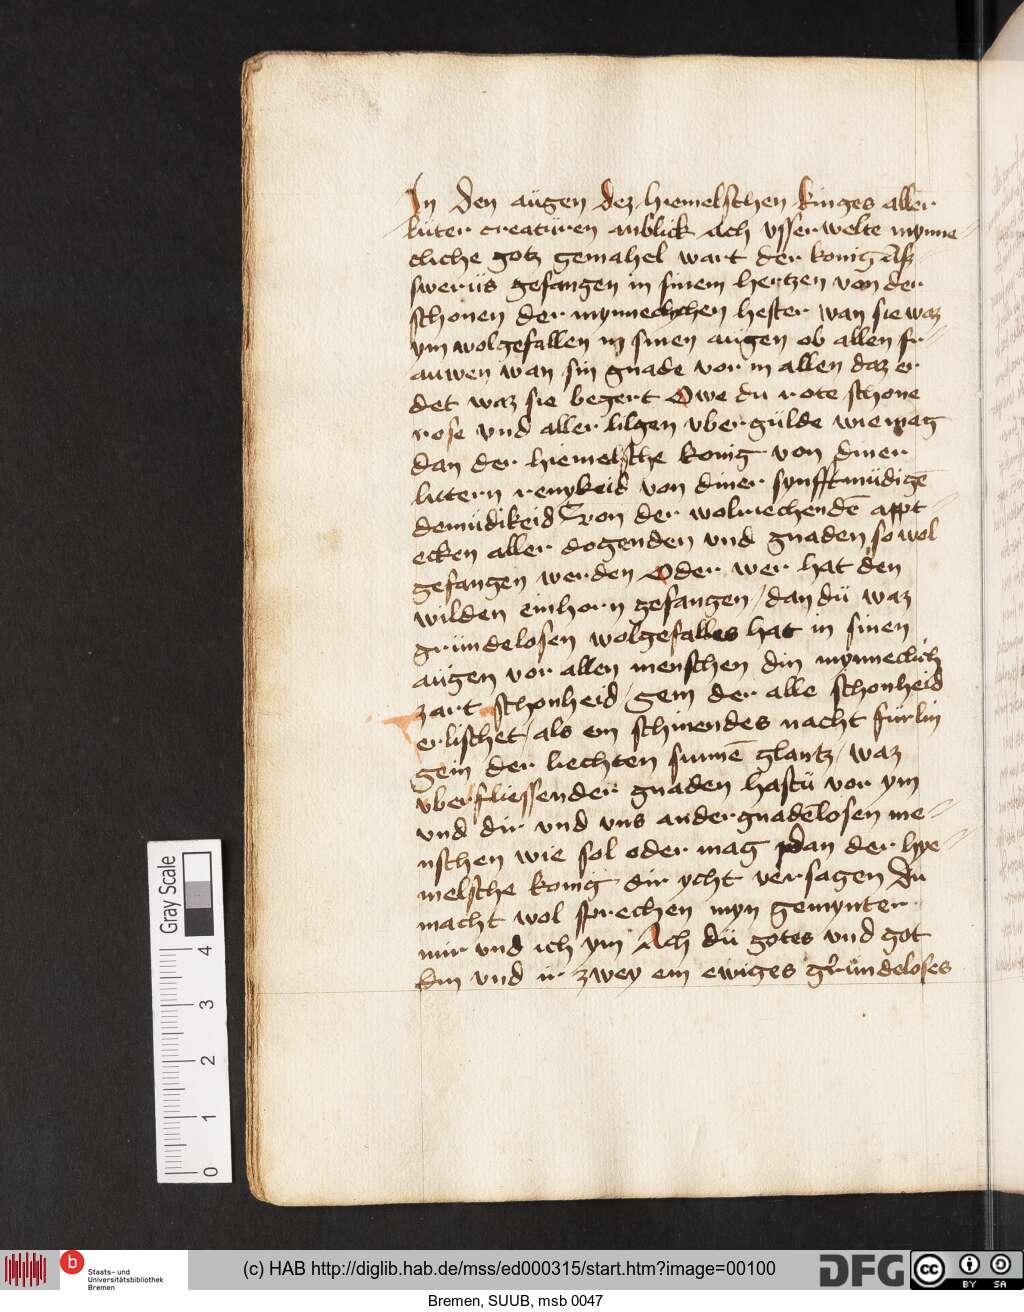 In den augen dez hiemelschen kinges aller
luter creaturen anblick Ach vsserwelte mynne-
cliche gotz gemahel wart der konig Asz-
swerus gefangen in sinem hertzen von der
schonen der mynneclychen hester wan sie waz
ym wolgefallen in sinen augen ob allen fr-
auwen wan sin gnade vor in allen daz er
det waz sie begert Owe du rote schone
rose vnd aller lilgen vbergulde wie mag
dan der hiemelsche konig von diner
luttern renykeid von diner synfftmudigē
demudikeid von der wolriechendē appt-
ecken aller dogenden vnd gnaden so wol
gefangen werden Oder wer hat den
wilden einhorn gefangen / dan dü waz
gründelosen wolgefalles hat in sinen
augen vor allen menschen din mynneclich
zart schonheid / gein der alle schonheid
erlischet / als ein schinendes nacht fürlin
gein der liechten sunnē glantz / waz
vberfliessender gnaden hastü vor ym
vnd dir vnd vns ander gnadēlosen me-
nschen wie sol oder mag dan der hye-
melsche konig dir ycht versagen Du
macht wol sprechen myn gemynter
mir vnd ich ym Ach dü gotes vnd got
din vnd ir zwey ein ewiges gründeloses
Gray Scale
4
3
2
1
0
b
Staats- und
Universitätsbibliothek
Bremen
(c) HAB http://diglib.hab.de/mss/ed000315/start.htm?image=00100
DFG
cc
BY SA
Bremen, SUUB, msb 0047